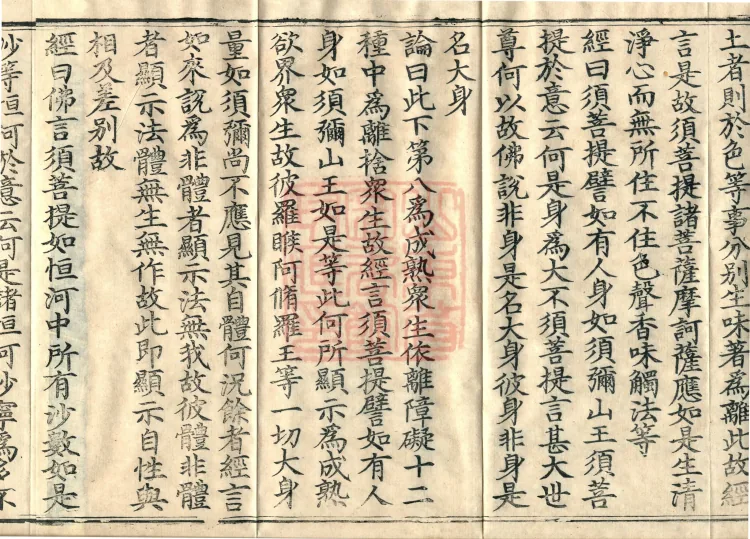 土者則於色等事分別生味著為離此故經
言是故須菩提諸菩薩摩訶薩應如是生清
淨心而無所住不住色聲香味觸法等
經曰須菩提譬如有人身如須彌山王須菩
提於意云何是身為大不須菩提言甚大世
尊何以故佛說非身是名大身彼身非身是
名大身
論曰此下第八為成熟眾生依離障礙十二
種中為離捨眾生故經言須菩提譬如有人
身如須彌山王如是等此何所顯示為成熟
欲界眾生故彼羅睺阿脩羅王等一切大身
量如須彌尚不應見其自體何況餘者經言
如來說為非體者顯示法無我故彼體非體
者顯示法體無生無作故此即顯示自性與
相及差別故
經曰佛言須菩提如恒河中所有沙數如是
沙等恒河於意云何是諸恒河沙寧為多不